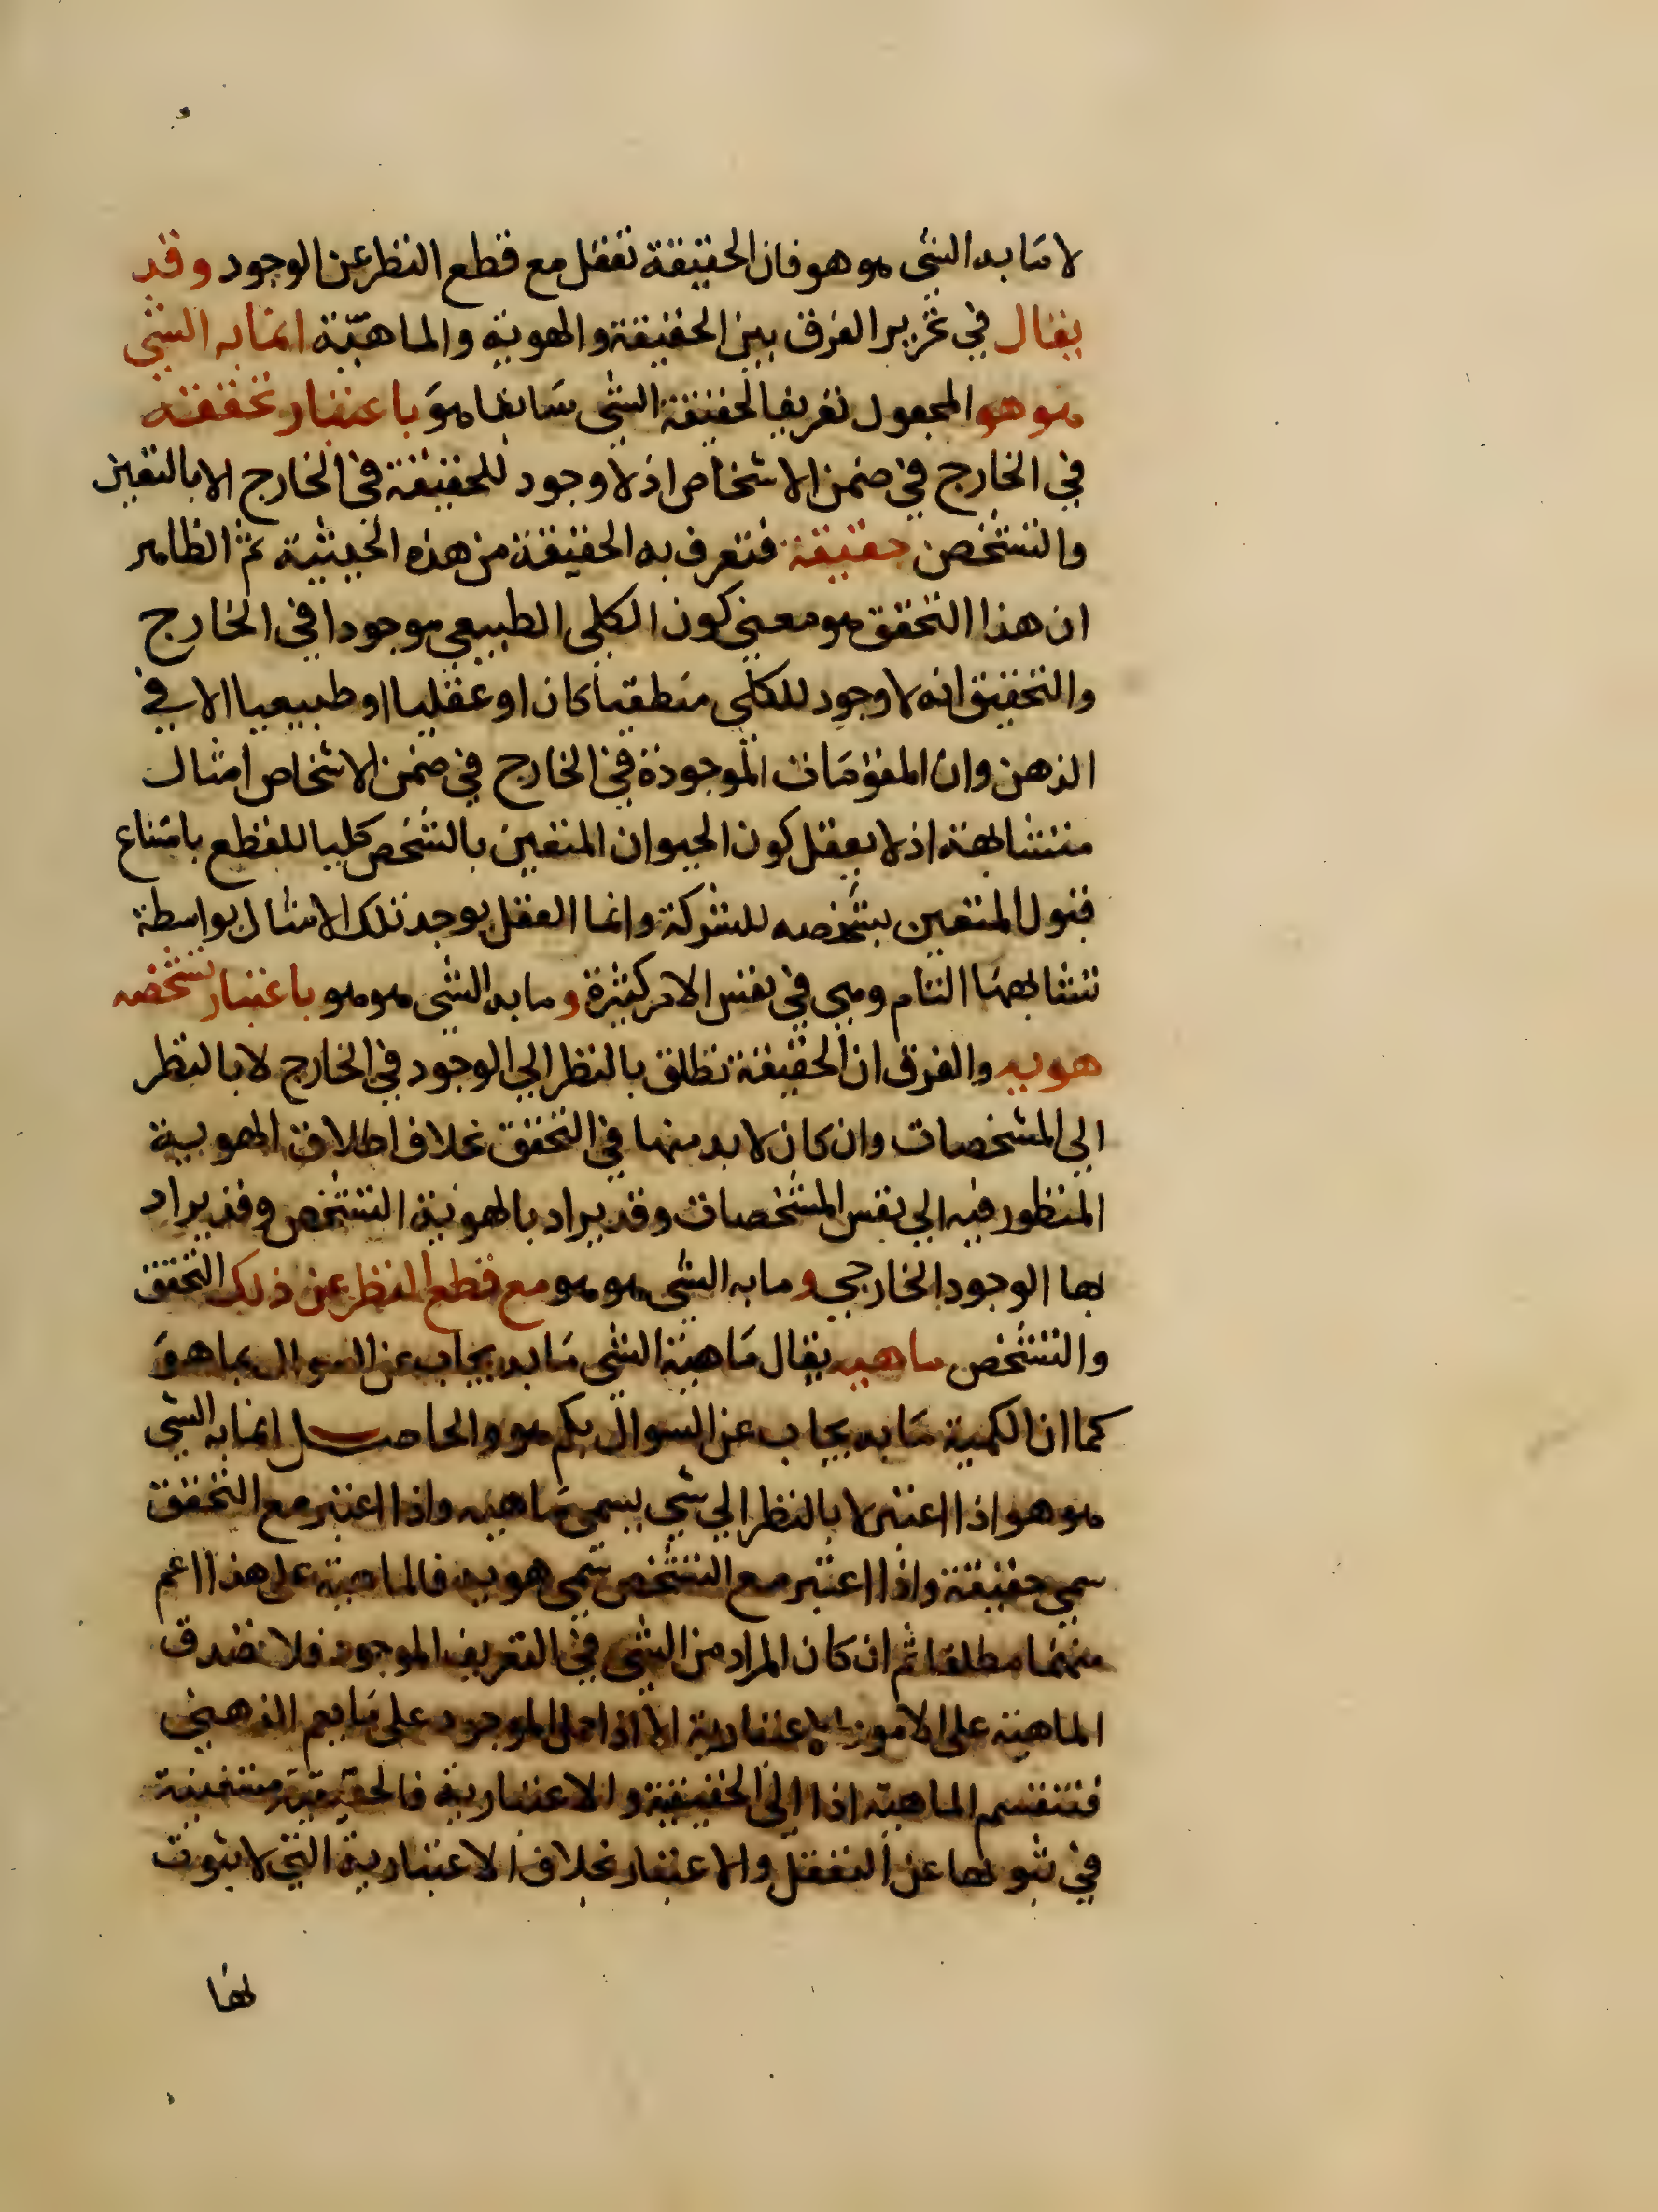 لا ما به الشي هو هو فان الحقيقة تعقل مع قطع النظر عن الوجود وقد
يقال في تحرير الفرق بين الحقيقة والهوية والماهيّة ان ما به الشي
هو هو المجعول تعريفا لحقيقة الشي سابقا هو باعتبار تحققه
في الخارج في ضمن الاشخاص اذ لا وجود للحقيقة في الخارج الا بالتعين
والتشخص حقيقة فتعرف به الحقيقة من هذه الحيثية ثم الظاهر
ان هذا التحقق هو معنى كون الكلي الطبيعي موجودا في الخارج
والتحقيق انه لا وجود للكلي منطقيا كان او عقليا او طبيعيا الا في
الذهن وان المقومات الموجودة في الخارج في ضمن الاشخاص امثال
متشابهة اذ لا يعقل كون الحيوان المتعين بالتشخص كليا للقطع بامتناع
قبول المتعين بتشخصه للشركة وانما العقل يوحد تلك الامثال بواسطة
تشابهها التام وهي في نفس الامر كثيرة وما به الشي هو هو باعتبار تشخصه
هوية والفرق ان الحقيقة تطلق بالنظر الي الوجود في الخارج لا بالنظر
الي المشخصات وان كان لا بد منها في التحقق بخلاف اطلاق الهوية
المنظور فيه الي نفس المشخصات وقد يراد بالهوية التشخص وقد يراد
بها الوجود الخارجي وما به الشي هو هو مع قطع النظر عن ذلك التحقق
والتشخص ماهية يقال ماهية الشي ما به يجاب عن السوال بما هو
كما ان الكمية ما به يجاب عن السوال بكم هو والحاصل ان ما به الشي
هو هو اذا اعتبر لا بالنظر الي شي يسمي ماهية واذا اعتبر مع التحقق
سمي حقيقة واذا اعتبر مع التشخص سمي هوية فالماهية علي هذا اعم
منهما مطلقا ثم ان كان المراد من الشي في التعريف الموجود فلا تصدق
الماهية علي الامور الاعتبارية الا اذا حمل الموجود علي ما يعم الذهني
فتنقسم الماهية اذا الي الحقيقية والاعتبارية فالحقيقية مستغنية
في ثبوتها عن التعقل والاعتبار بخلاف الاعتبارية التي لا ثبوت
لها